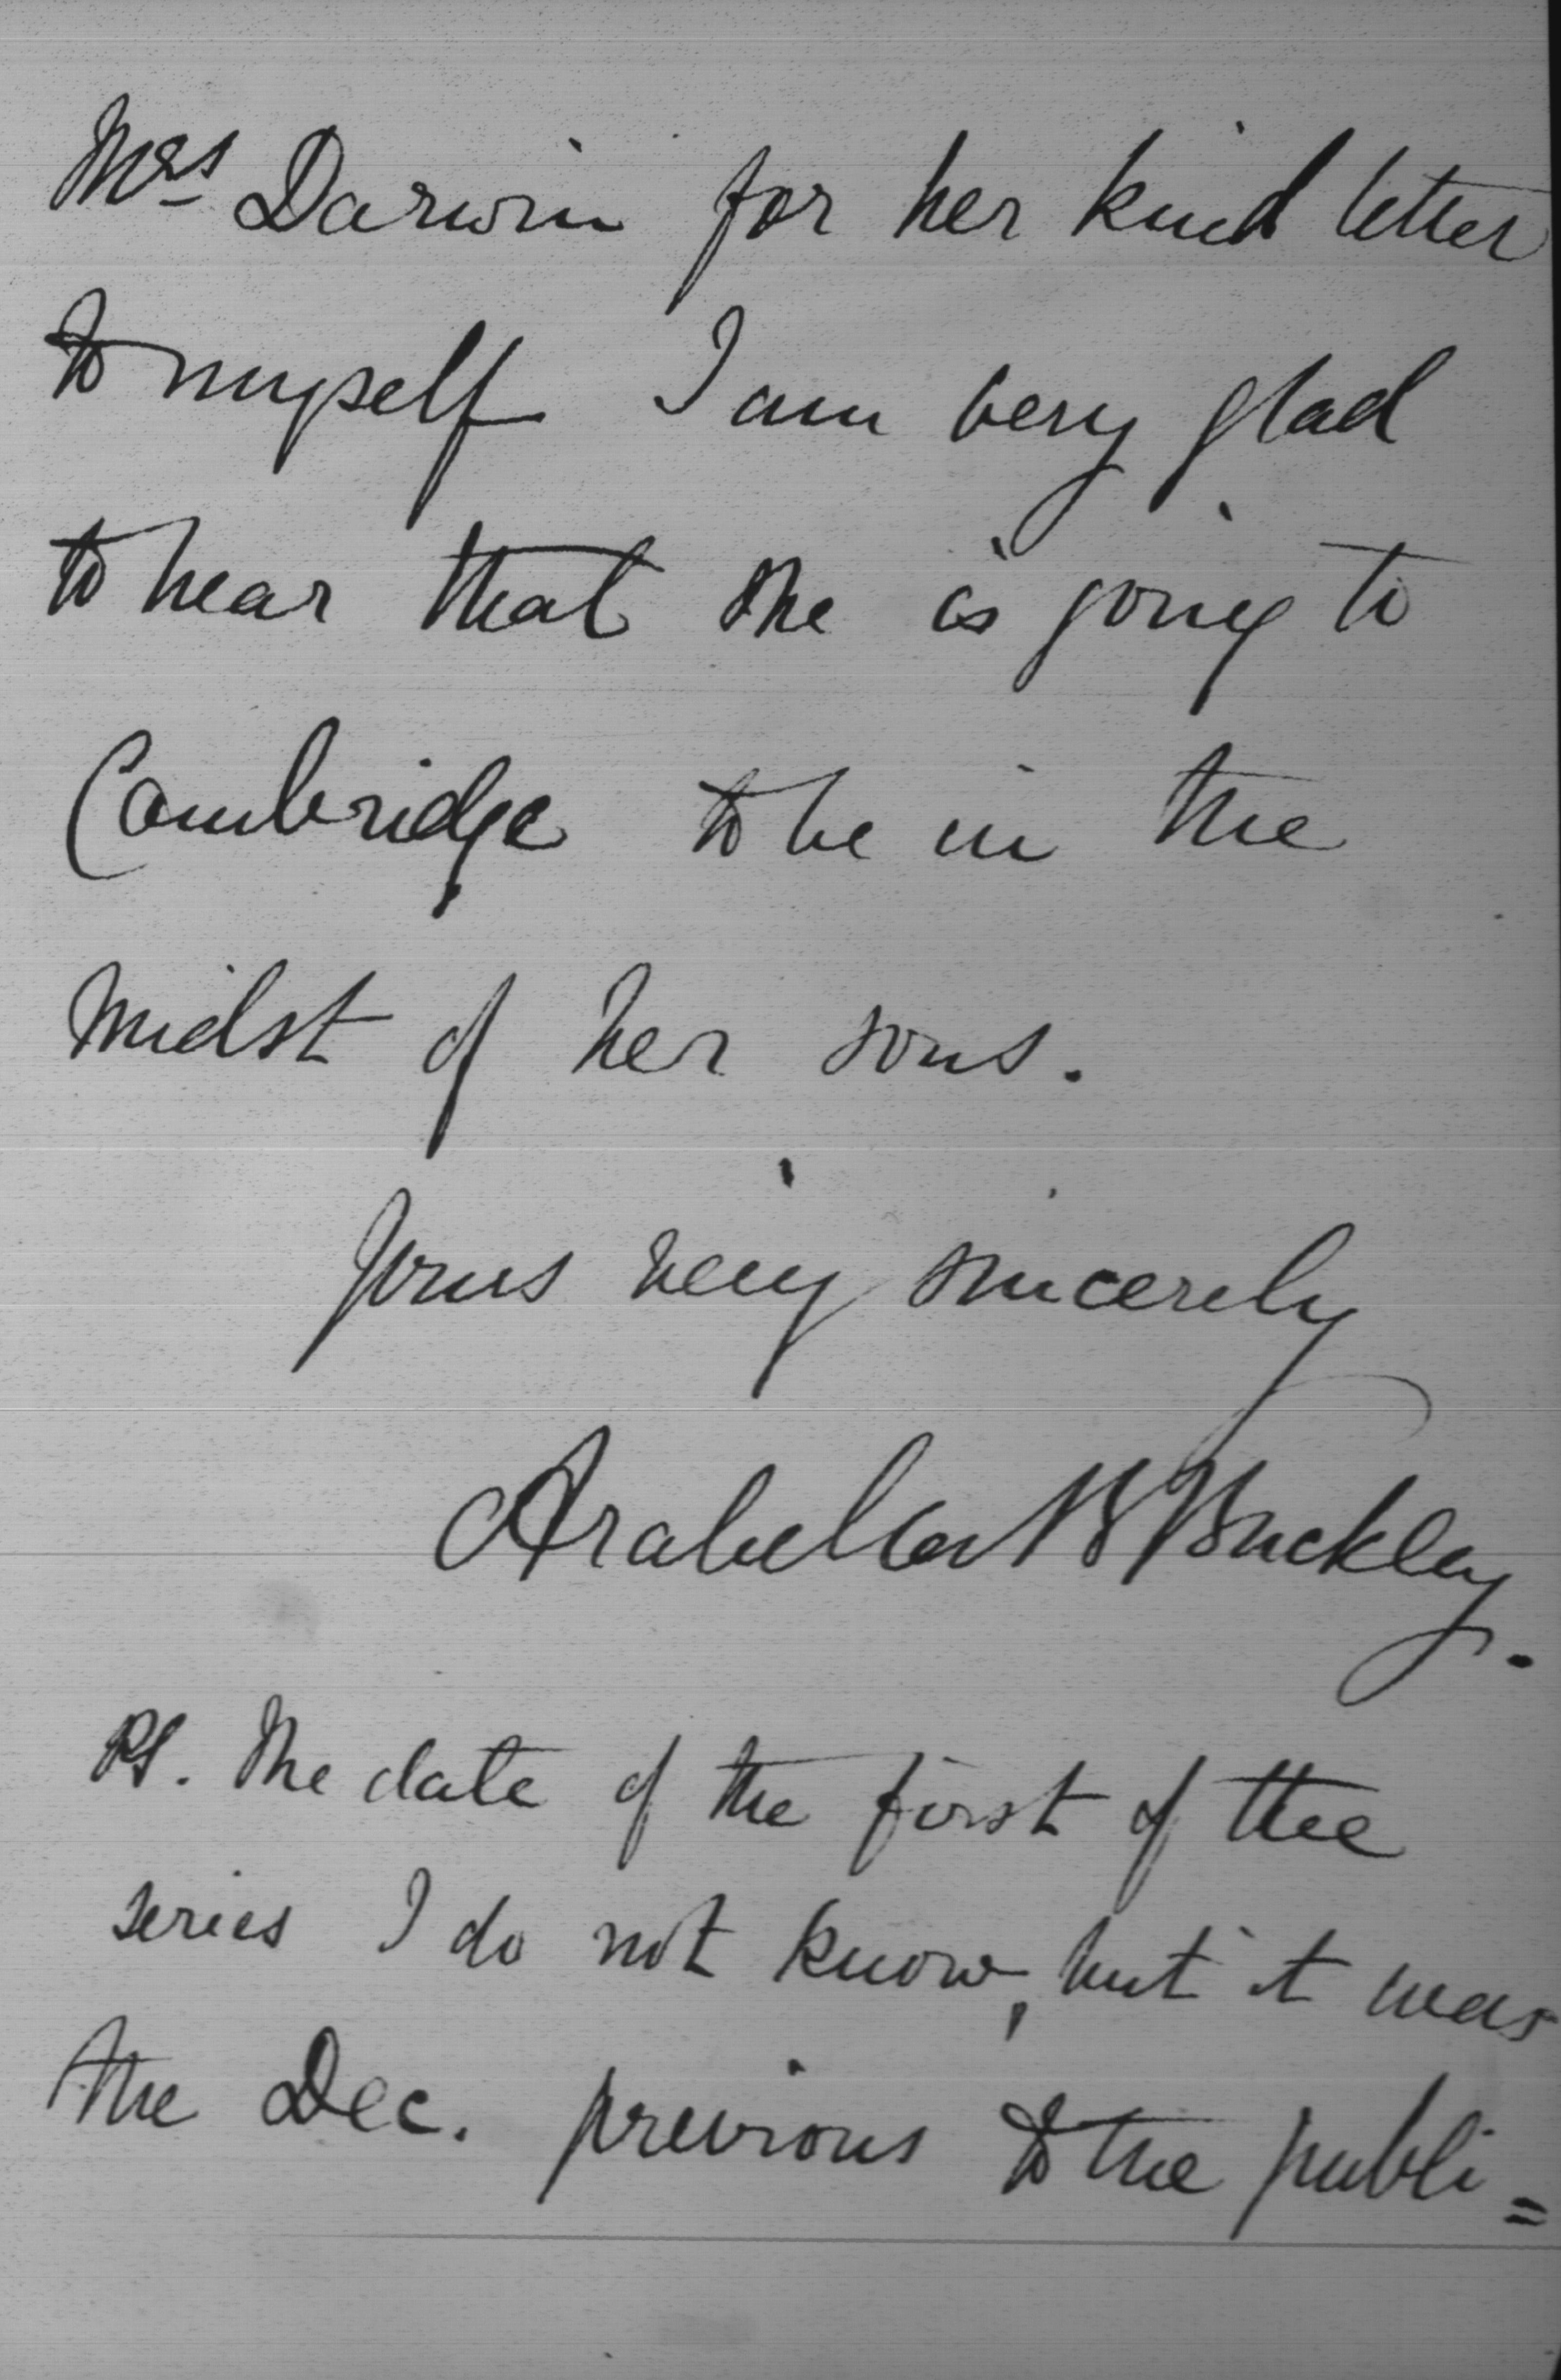 Mrs Darwin for her kind letter
to myself I am very glad
to hear that she is going to
Cambridge to be in the
midst of her sons.
Yours very sincerely
Arabella B Buckley.
PS. The date of the first of the
series I do not know, but it was
the Dec. previous to the publi=